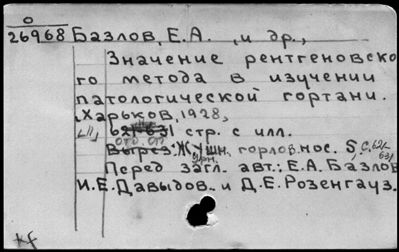 О
26968 Базлов, Е.А. , и др.,
Значение рентгеновско
го метода в изучении
патологической гортани.
Харьков, 1928,
621-631 стр. с илл.
отд. отт
Вырез: Ж. Ушн. горлов. нос. 5, с. 621-
631
Перед загл. авт.: Е.А. Базлов
И.Е. Давыдов и Д.Е. Розенгауз.
kf